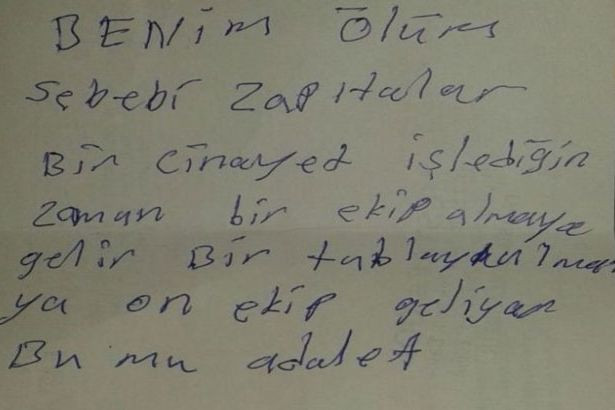 BENİM ÖLÜM
Sebebi Zapıtalar
Bir cinayet işlediğin
zaman bir ekip almaya
gelir Bir tablayı almaya
ya on ekip geliyar
Bu mu adalet